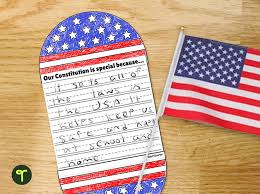 Our Constitution is special because...
it so is all of
the laws in
the USA. It
helps keep us
safe and
at school and
home.